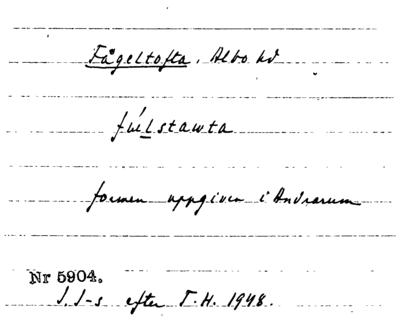 Fågeltofta. Albo hd
fúelstawta
formen uppgiven i Andrarum
Nr 5904.
J. J-s efter T.H. 1948.